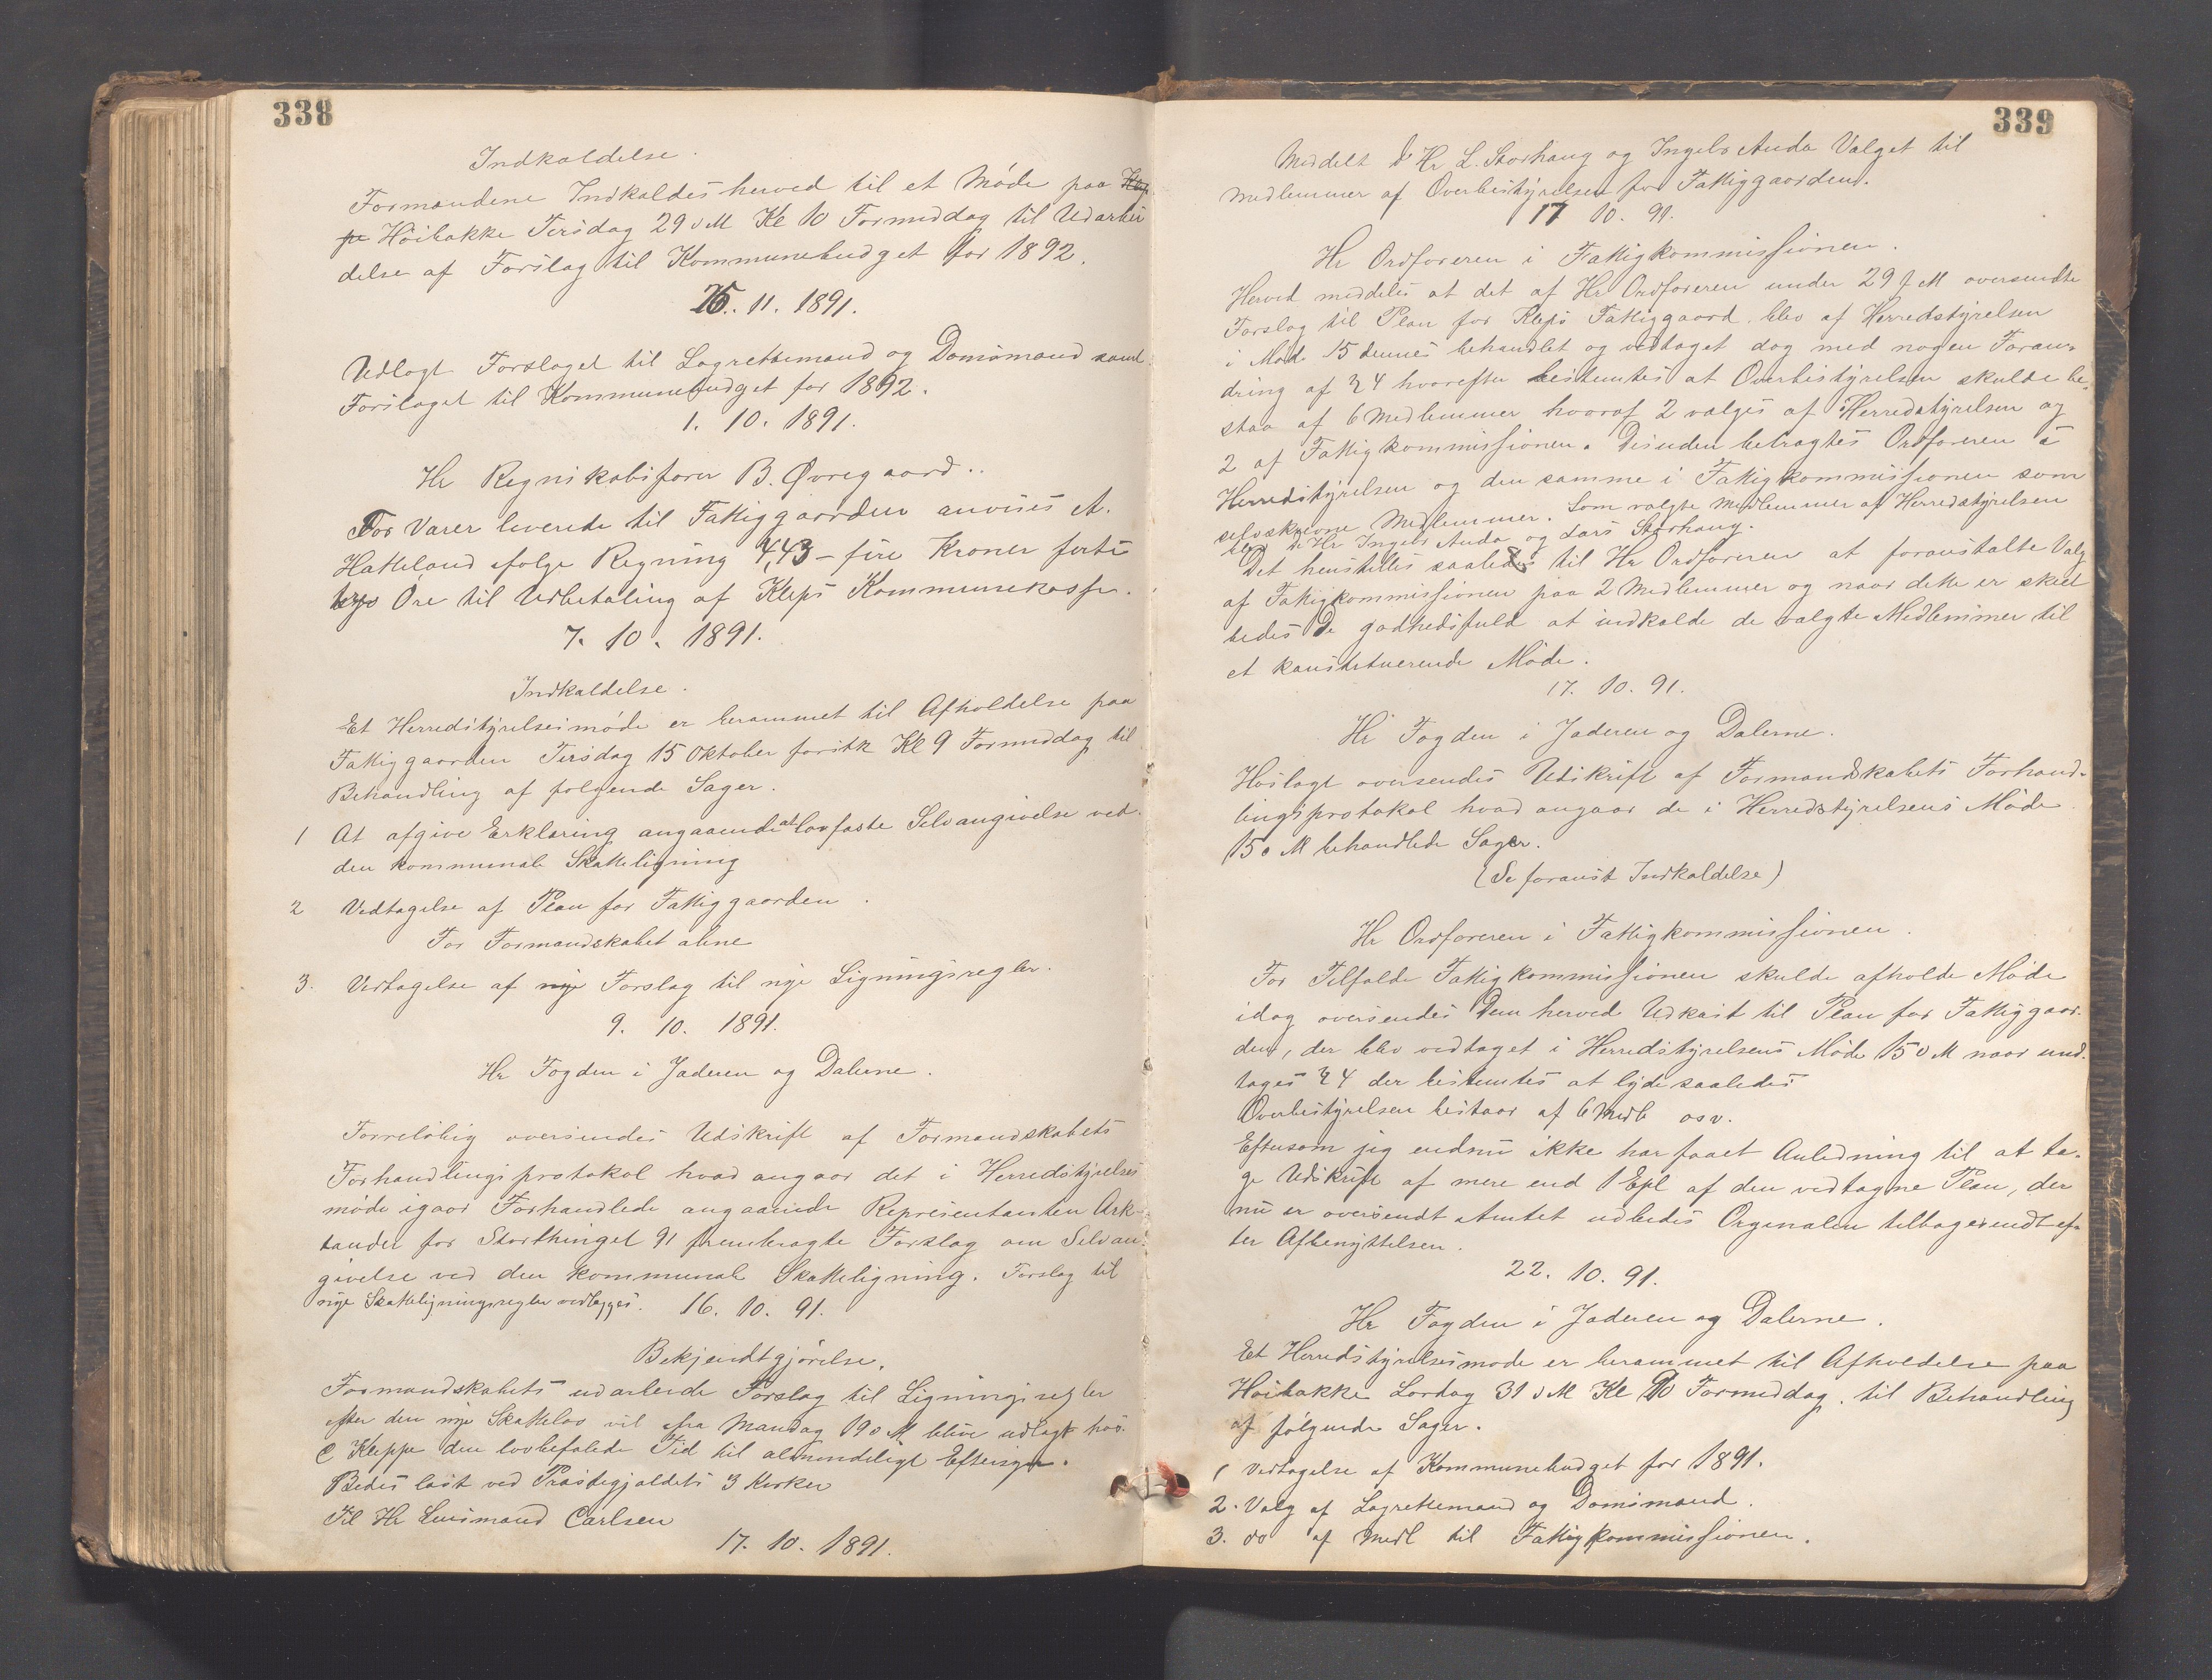 338
Indkaldelse.
Formændene Indkaldes herved til et Møde paa Klep
pe Høibakke Tirsdag 29 d M Kl 10 Formiddag til Udarbei
delse af Forslag til Kommunebudget for 1892.
25. 11. 1891.
Udlagt Forslaget til Lagrettemænd og Domsmænd samt
Forslaget til Kommunebudget for 1892.
1. 10. 1891.
Hr Regnskabsfører B. Øvregaard..
For Varer leverede til Fattiggaarden anvises A.
Hatteland ifølge Regning 4,43 – fire Kroner førti
tre Øre til Udbetaling af Kleps Kommunekasse.
7. 10. 1891.
Indkaldelse.
Et Herredstyrelsesmøde er berammet til Afholdelse paa
Fattiggaarden Tirsdag 15 Oktober førstk Kl 9 Formiddag til
Behandling af følgende Sager.
1 At afgive Erklæring angaaende at lovfæste Selvangivelse ved
den kommunale Skatteligning
2 Vedtagelse af Plan for Fattiggaarden.
For Formandskabet alene
3. Vedtagelse af nye Forslag til nye Ligningsregler.
9. 10. 1891.
Hr Fogden i Jæderen og Dalerne.
Forreløbig oversendes Udskrift af Formandskabets
Forhandlingsprotokol hvad angaar det i Herredstyrelses
møde igaar Forhandlede angaaende Repræsentanten Ark
tander for Storthinget 91 frembragte Forslag om Selvan
givelse ved den kommunale Skatteligning. Forslag til
nye Skatteligningsregler vedlægges. 16. 10. 91.
Bekjendtgjørelse.
Formandskabets udarbeide Forslag til Ligningsregler
efter den nye Skattelov vil fra Mandag 19 d M blive udlagt hos
C Kleppe den lovbefalede Tid til almindeligt Eftersyn.
Bedes læst ved Præstegjældets 3 Kirker
Til Hr Lensmand Carlsen
17. 10. 1891.
339
Meddelt D'Hr L. Storhaug og Ingebr Anda Valget til
Medlemmer af Overbestyrelsen for Fattiggaarden.
17 10. 91.
Hr Ordføreren i Fattigkommissionen.
Herved meddeles at det af Hr Ordføreren under 29 f M oversendte
Forslag til Plan for Kleps Fattiggaard blev af Herredstyrelsen
i Møde 15 dennes behandlet og vedtaget dog med nogen Foran-
dring af § 4 hvorefter bestemtes at Overbestyrelsen skulde be-
staa af 6 Medlemmer hvoraf 2 vælges af Herredstyrelsen og
2 af Fattigkommissionen. Desuden betragtes Ordføreren i
Herredstyrelsen og den samme i Fattigkommissionen som
selvskrevne Medlemmer. Som valgte Medlemmer af Herredstyrelsen
er D Hr Ingebr Anda og Lars Storhaug.
Det henstilles saaledes til Hr Ordføreren at foranstalte Valg
af Fattigkommissionen paa 2 Medlemmer og naar dette er skeet
bedes De godhedsfuld at indkalde de valgte Medlemmer til
et konstituerende Møde.
17. 10. 91.
Hr Fogden i Jæderen og Dalerne.
Hoslagt oversendes Udskrift af Formandskabets Forhand-
lingsprotokol hvad angaar de i Herredstyrelsens Møde
15 d M behandlede Sager.
(Se foranst Indkaldelse)
Hr Ordføreren i Fattigkommissionen.
For Tilfælde Fattigkommissionen skulde afholde Møde
idag oversendes Dem herved Udkast til Plan for Fattiggaar-
den, der blev vedtaget i Herredstyrelsens Møde 15 d M naar und-
tages § 4 der bestemtes at lyde saaledes
Overbestyrelsen bestaar af 6 Medl osv.
Eftersom jeg endnu ikke har faaet Anledning til at ta-
ge Udskrift af mere end 1 Expl af den vedtagne Plan, der
nu er oversendt Amtet udbedes Orginalen tilbagesendt ef-
ter Afbenyttelsen.
22. 10. 91.
Hr Fogden i Jæderen og Dalerne.
Et Herredstyrelsesmøde er berammet til Afholdelse paa
Høibakke Lørdag 31 d M Kl 10 Formiddag til Behandling
af følgende Sager.
1 Vedtagelse af Kommunebudget for 1891.
2. Valg af Lagrettemænd og Domsmænd.
3. do af Medl til Fattigkommissionen.